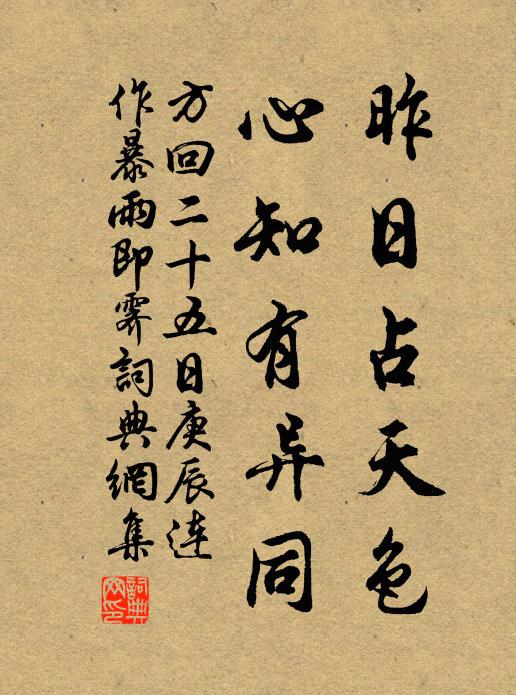 昨日占天色
心知有异同
方回二十五日庚辰连
作暴雨即霽詞典網集
詞典網印